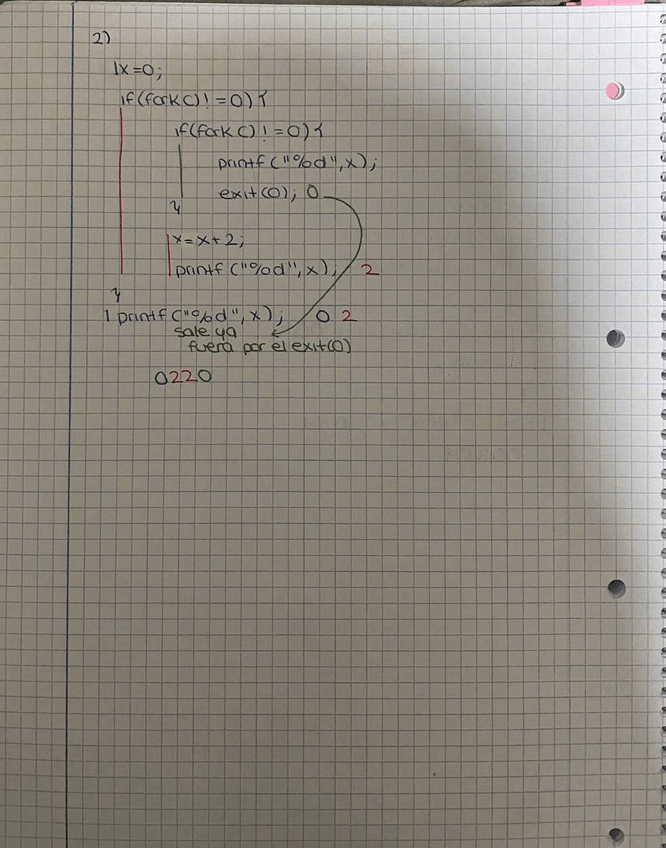 2)
x=0;
if(fork()!=0){
if(fork()!=0){
printf("%d",x);
exit(0); 0
}
x=x+2;
printf("%d",x); 2
}
printf("%d",x); 0 2
sale ya
fuera por el exit(0)
0220